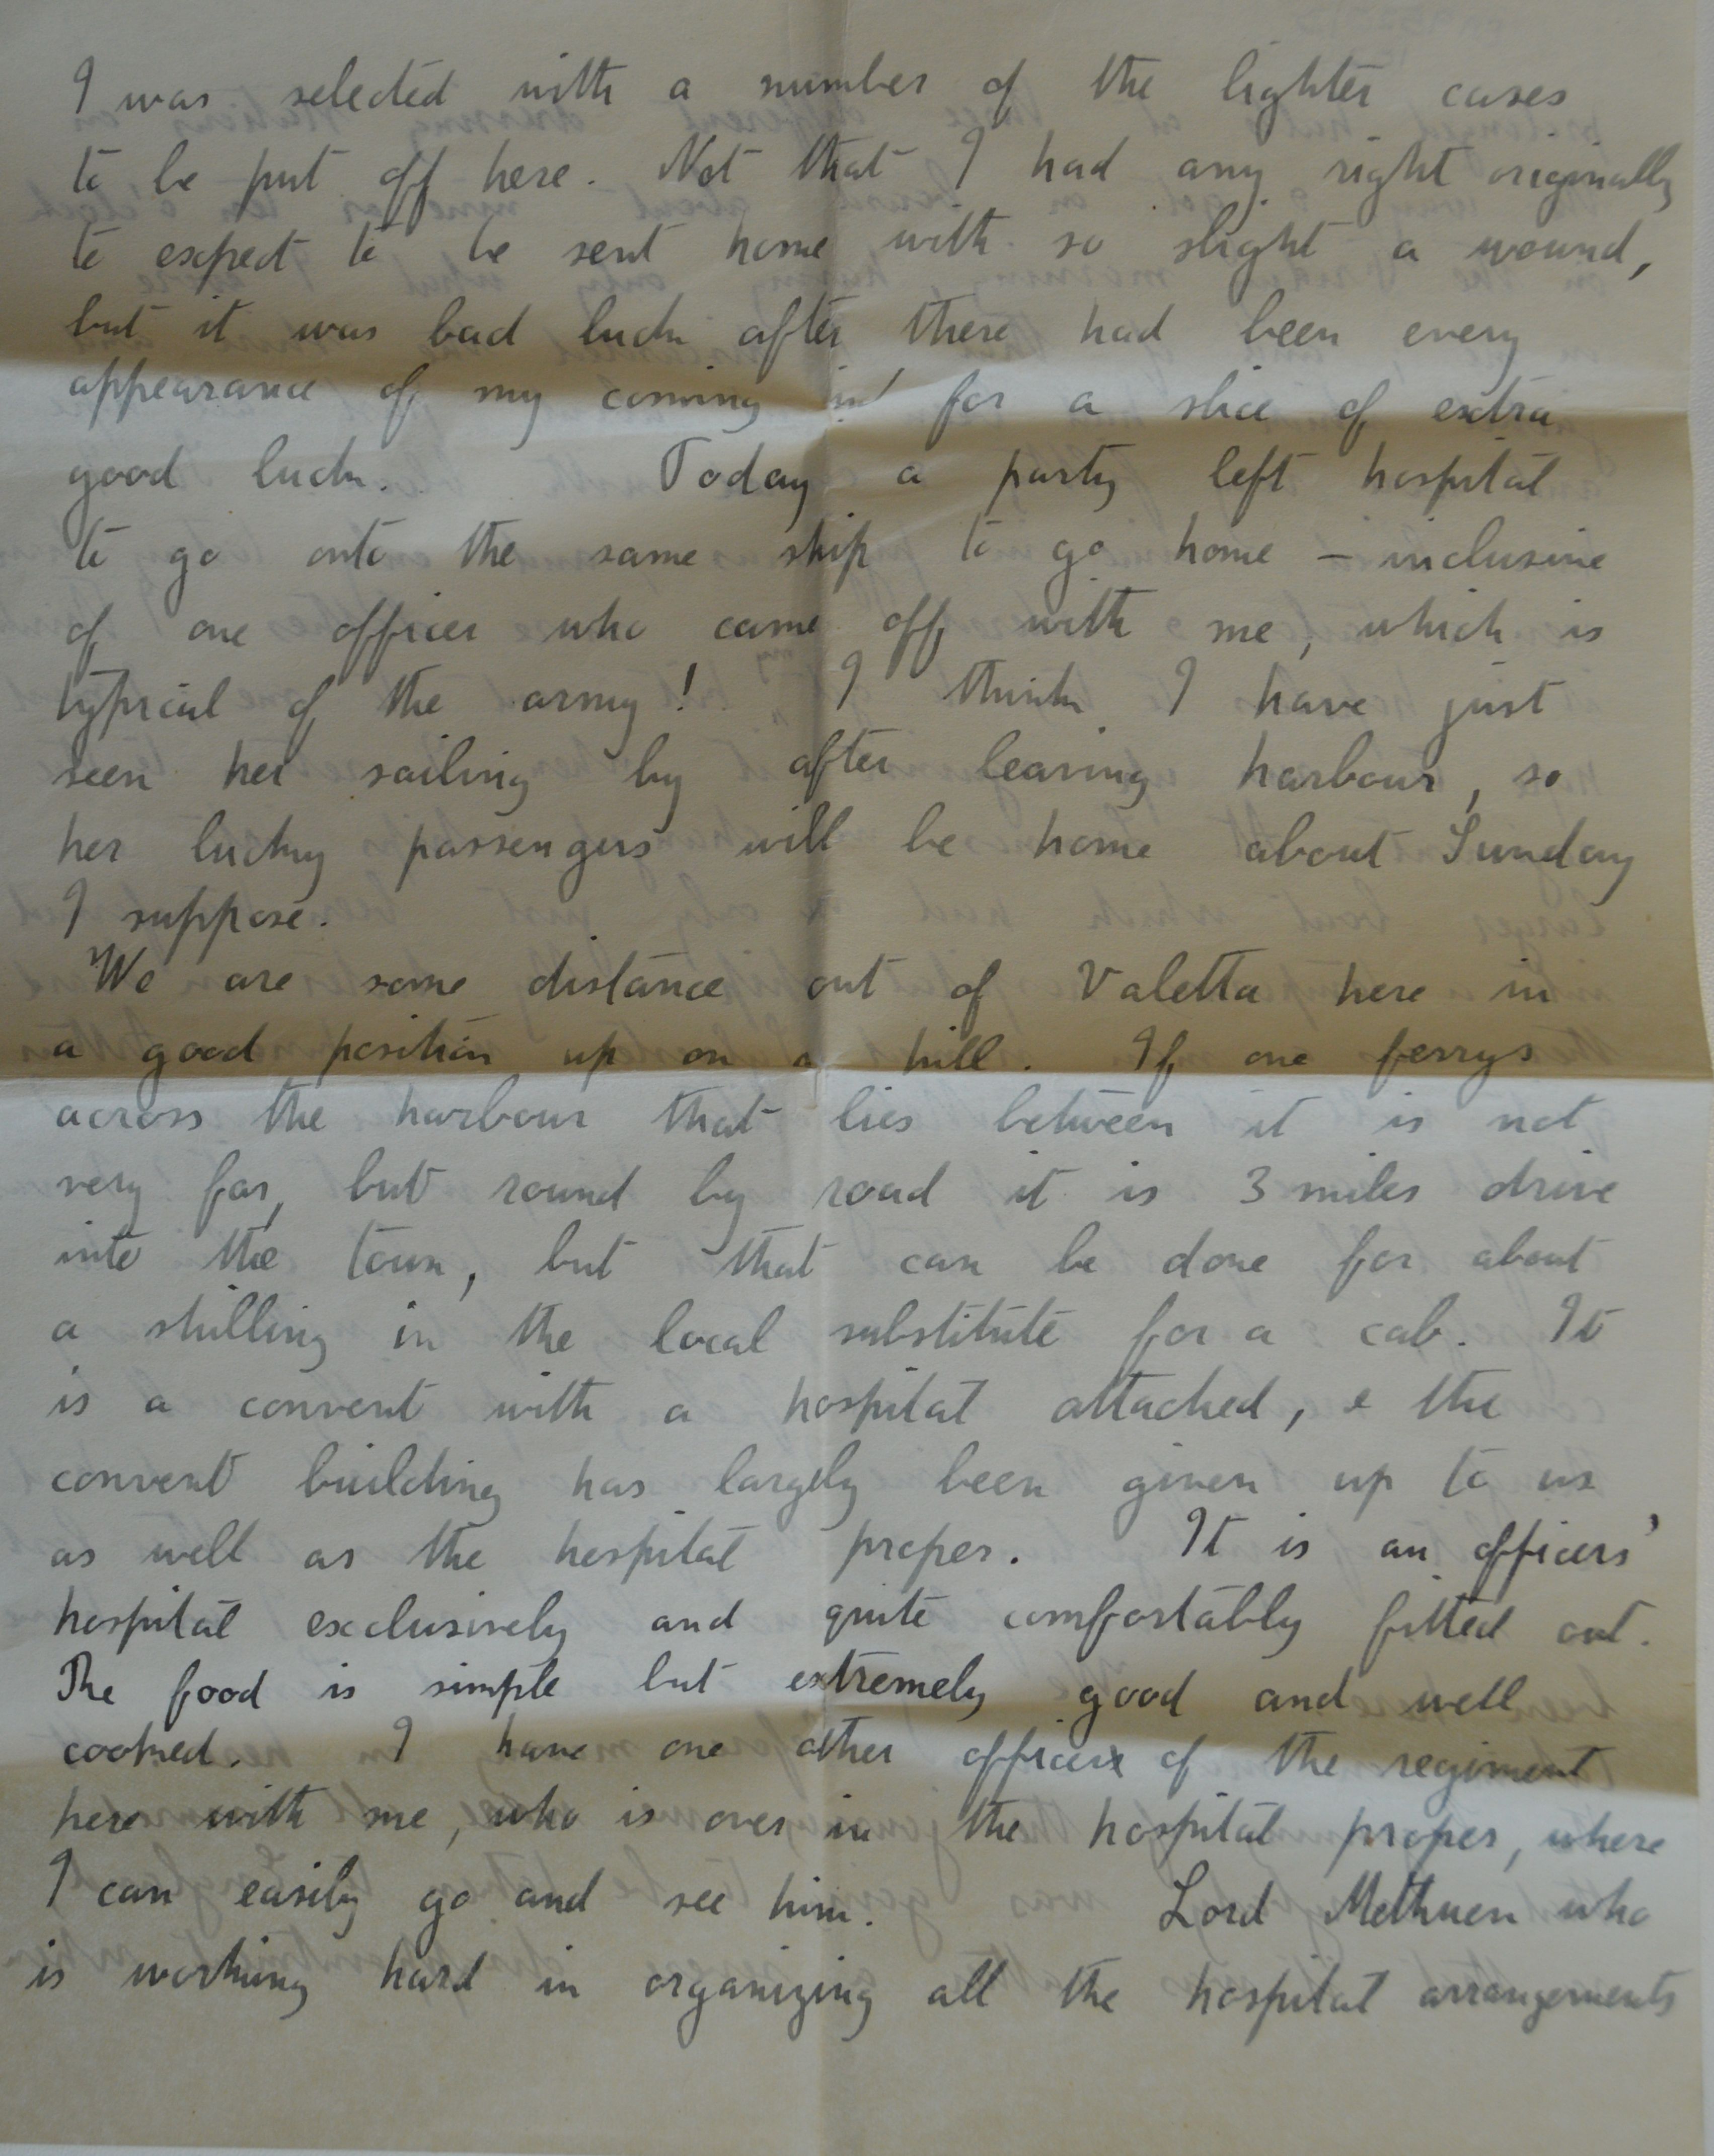 I was selected with a number of the lighter cases
to be put off here. Not that I had any right originally
to expect to be sent home with so slight a wound,
but it was bad luck after there had been every
appearance of my coming in for a slice of extra
good luck. Today a party left hospital
to go onto the same ship to go home – inclusive
of one officer who came off with me, which is
typical of the army! I think I have just
seen her sailing by after leaving harbour, so
her lucky passengers will be home about Sunday
I suppose.
We are some distance out of Valetta here in
a good position up on a hill. If one ferrys
across the harbour that lies between it is not
very far, but round by road it is 3 miles drive
into the town, but that can be done for about
a shilling in the local substitute for a cab. It
is a convent with a hospital attached, & the
convent building has largely been given up to us
as well as the hospital proper. It is an officers'
hospital exclusively and quite comfortably fitted out.
The food is simple but extremely good and well
cooked. I have one other officer of the regiment
here with me, who is over in the hospital proper, where
I can easily go and see him. Lord Methuen who
is working hard in organizing all the hospital arrangements